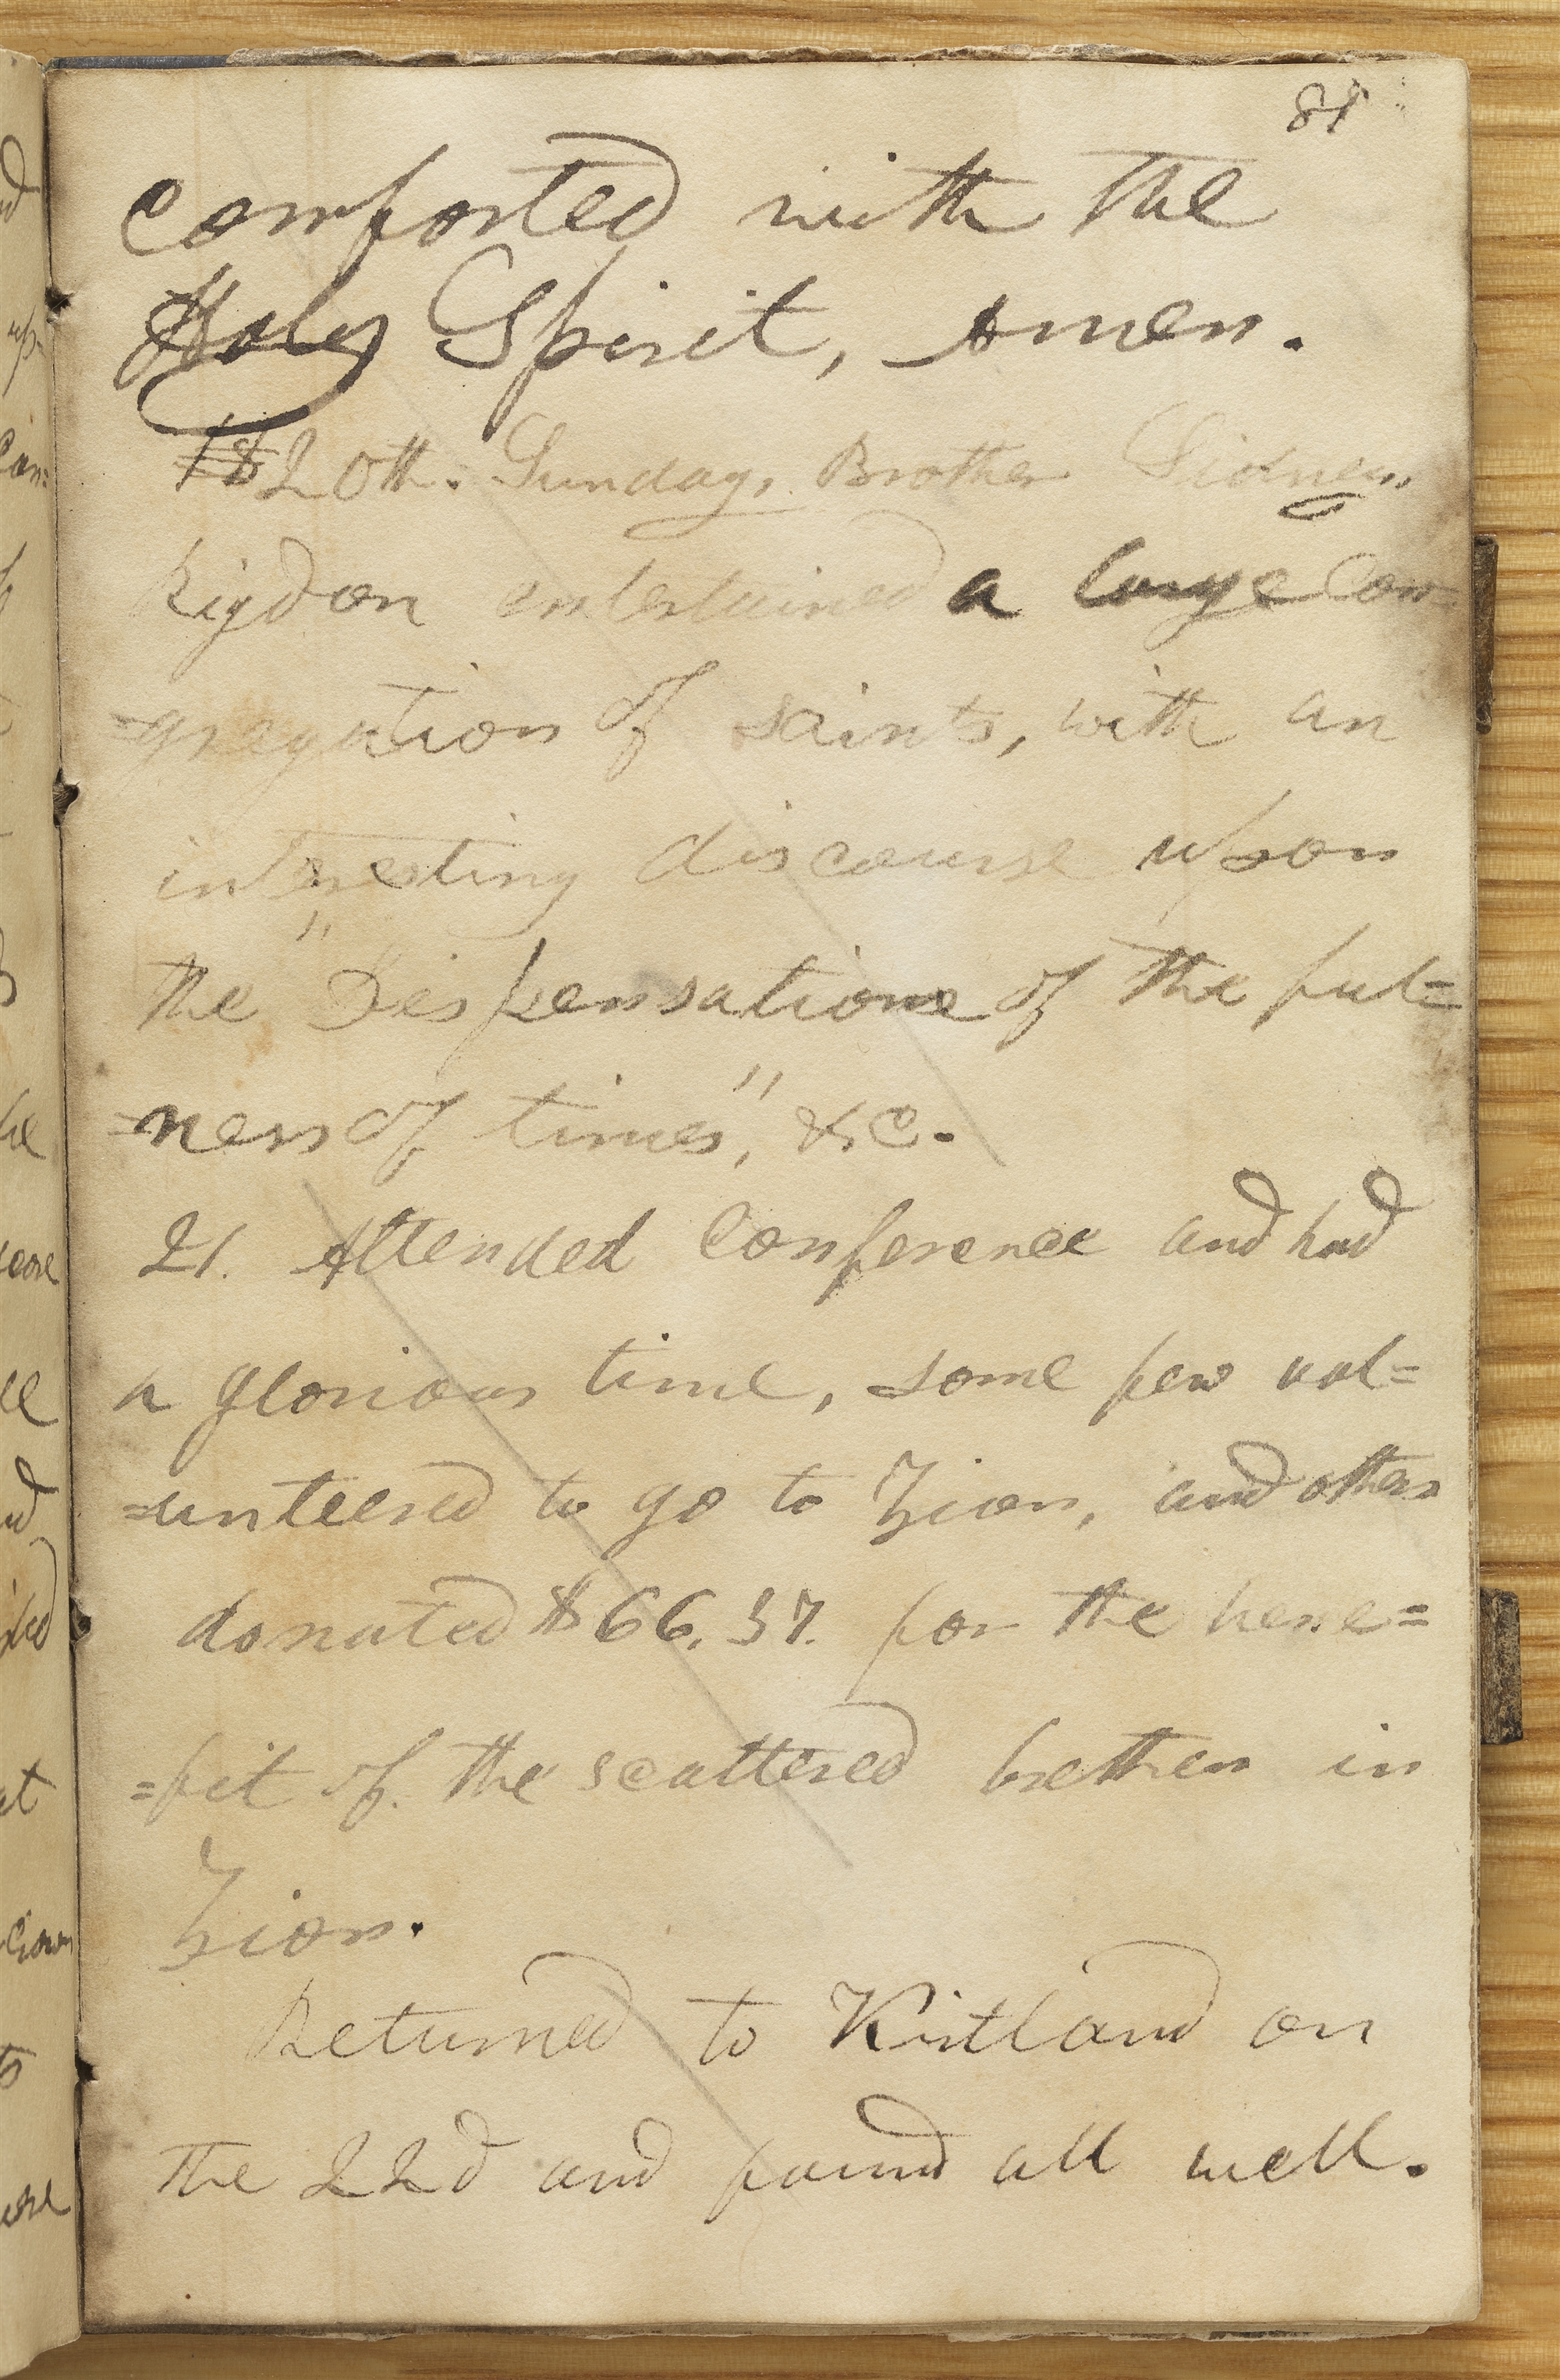 comforted with the
Holy Spirit, Amen.
20th. Sunday, Brother Sidney
Rigdon entertained a large con=
=gregation of saints, with an
interesting discourse upon
the "Dispensation of the ful=
=ness of times", &c.
21. Attended Conference and had
a glorious time, some few vol=
=unteered to go to Zion, and others
donated $66.37. for the bene=
=fit of the scattered brethren in
Zion.
Returned to Kirtland on
the 22d and found all well.